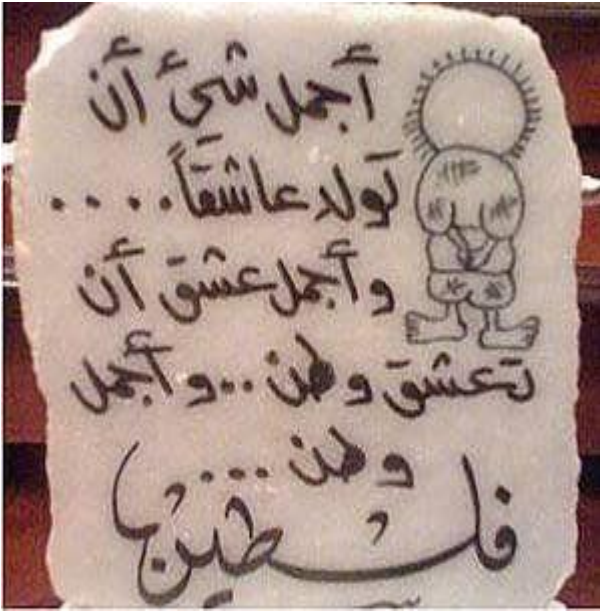 أجمل شيئ أن
تولد عاشقاً....
وأجمل عشق أن
تعشق وطن..وأجمل
وطن....
فلسطين